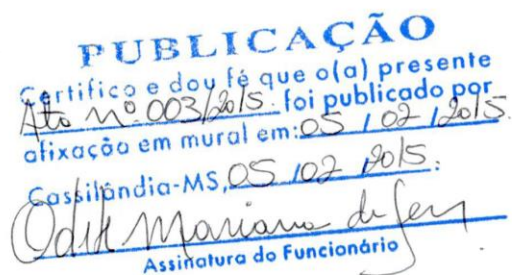 PUBLICAÇÃO
Certifico e dou fé que o(a) presente
Ato nº 003/2015. foi publicado por
afixação em mural em: 05 / 02 / 2015.
Cassilândia-MS, 05 / 02 / 2015.
Mariana de
Assinatura do Funcionário